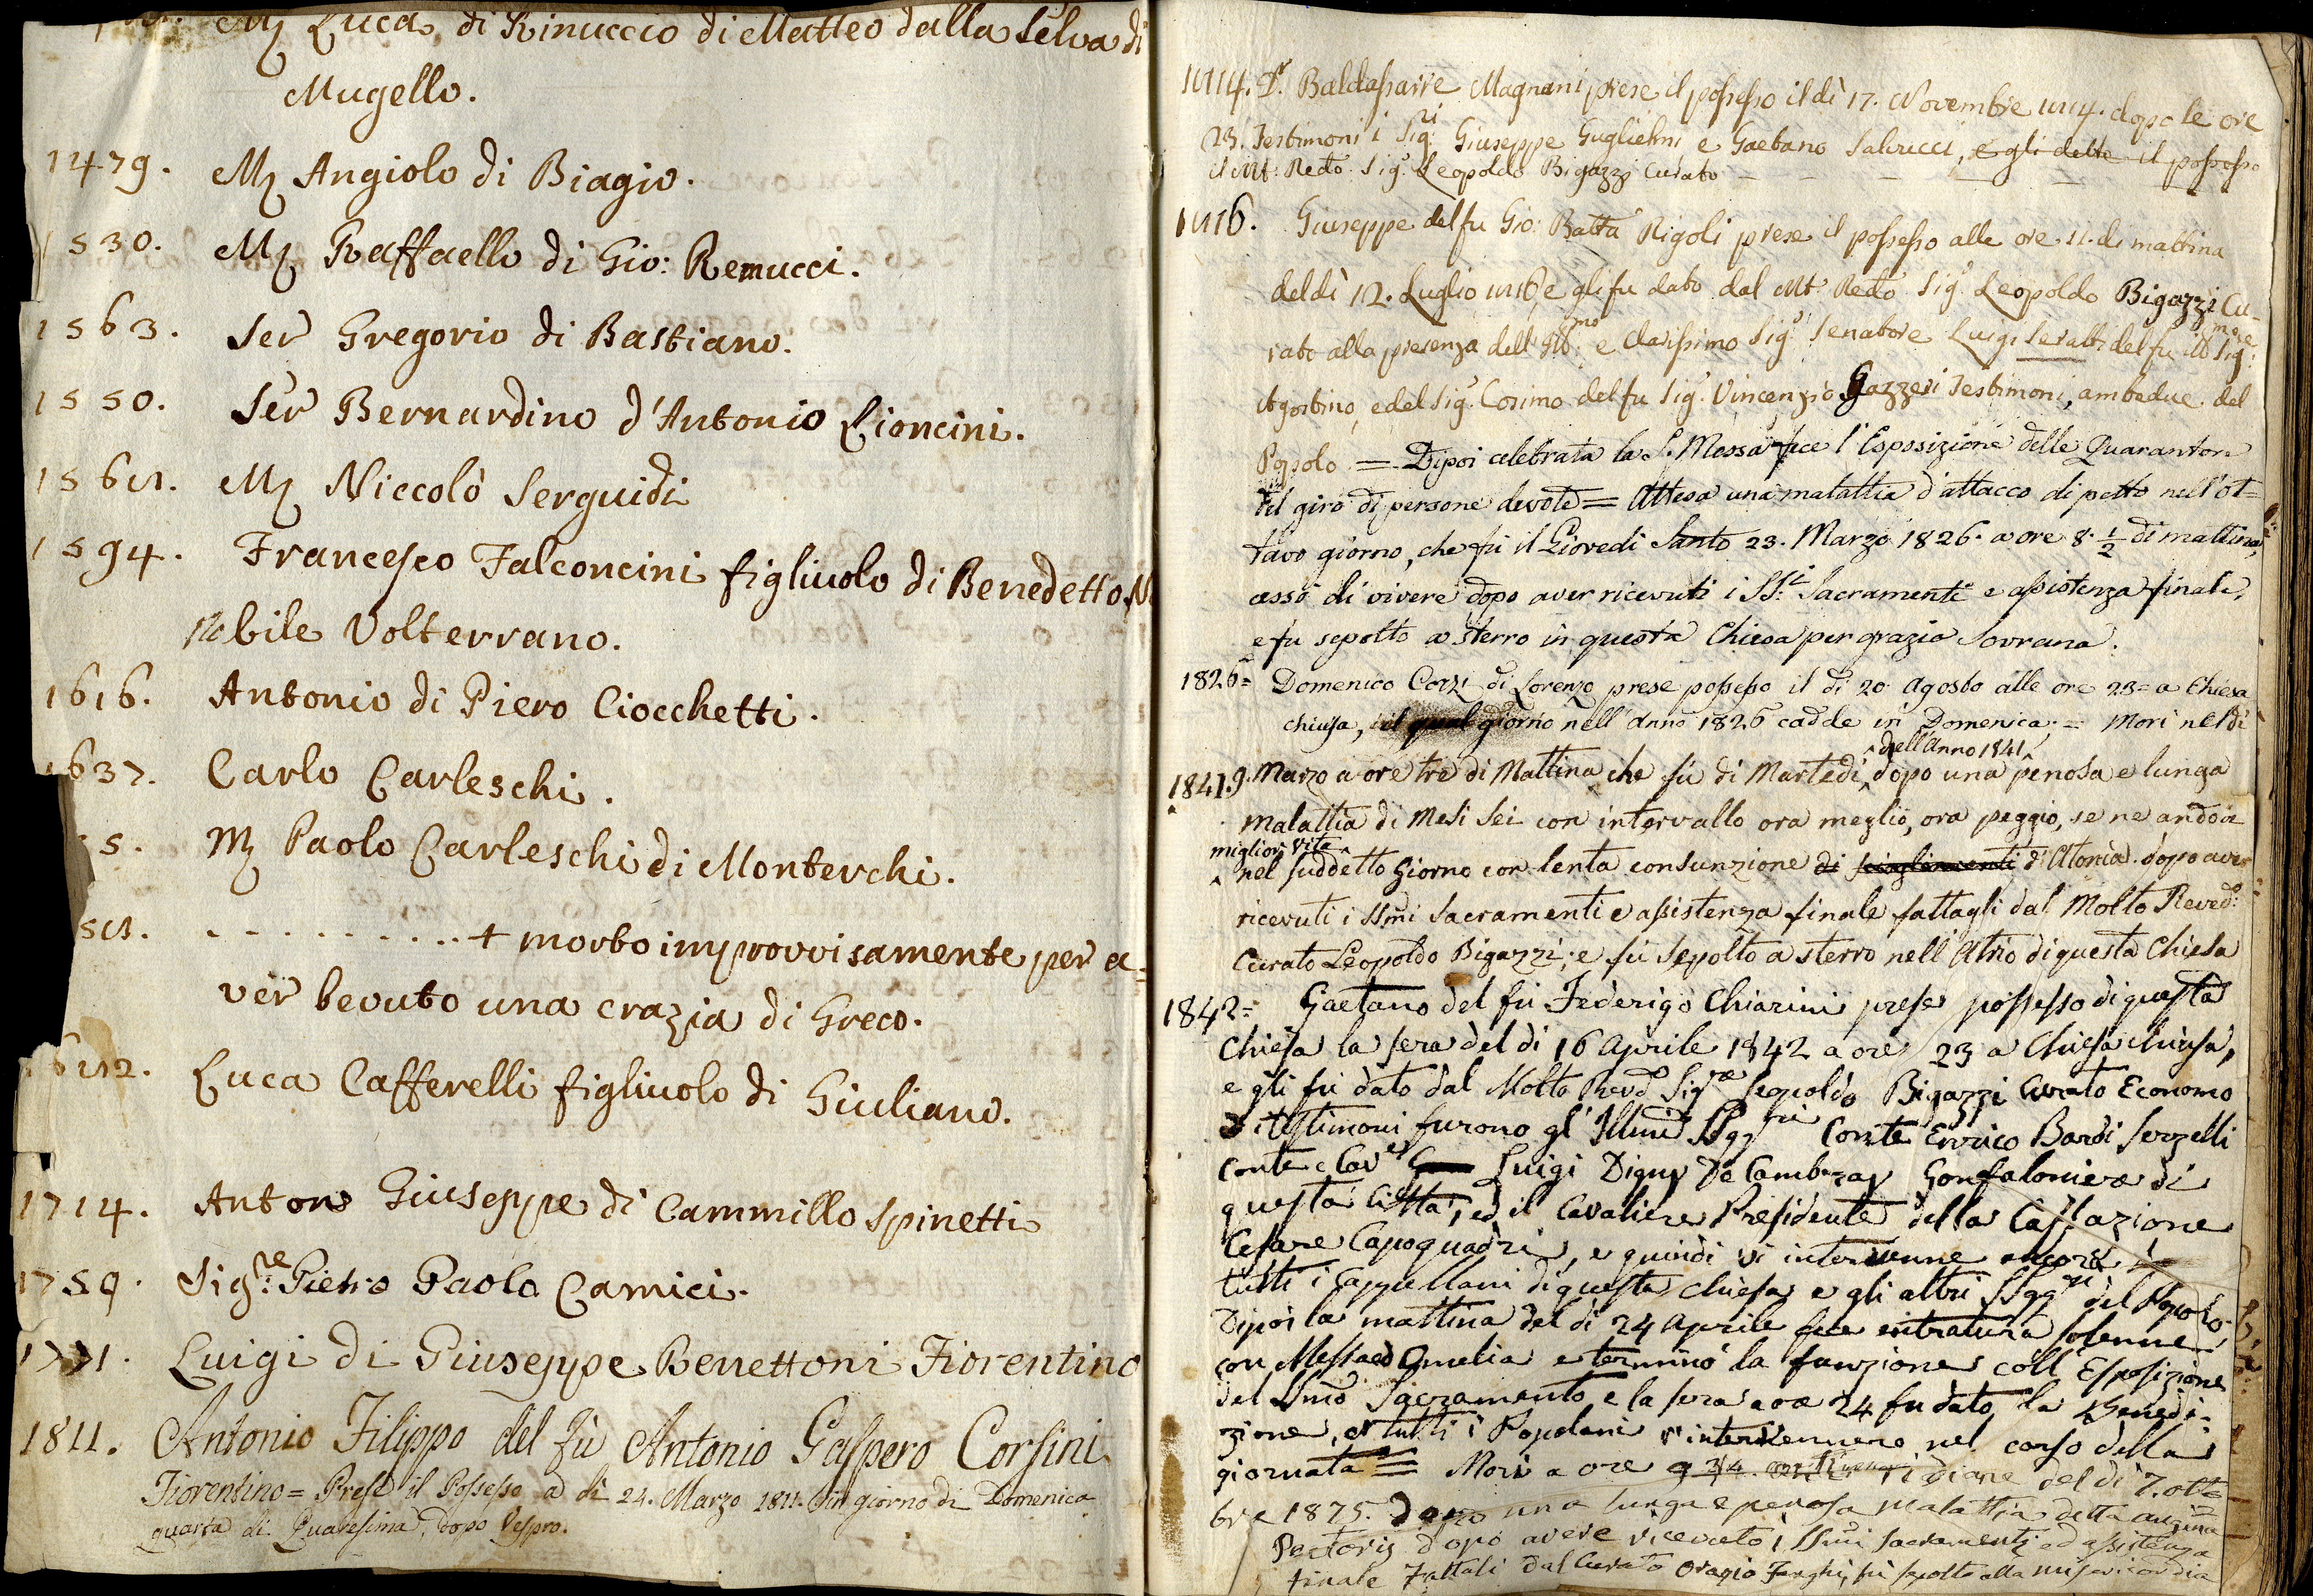 M. Luca di Rinuccio di Matteo dalla Selva di
Mugello.
1479. M. Angiolo di Biagio.
1530. M. Raffaello di Gio: Remucci.
1563. Ser Gregorio di Bastiano.
1550. Ser Bernardino d'Antonio Lioncini.
1568. M. Niccolò Serguidi
1594. Francesco Falconcini figliuolo di Benedetto
Nobile Volterrano.
1616. Antonio di Piero Ciocchetti.
1637. Carlo Carleschi.
5. M. Paolo Carleschi di Monterchi.
58. . . . . . . . . . . + morto improvvisamente per a=
ver bevuto una crazia di Greco.
682. Luca Cafferelli figliuolo di Giuliano.
1714. Anton Giuseppe di Cammillo Spinetti
1759. Sig.re Pietro Paolo Camici.
1771. Luigi di Giuseppe Benettoni Fiorentino
1811. Antonio Filippo del fù Antonio Gaspero Corsini
Fiorentino = Prese il Possesso a dì 24. Marzo 1811. in giorno di Domenica
quarta di Quaresima, dopo Vespro.
1814. Baldassarre Magnani prese il possesso il dì 17. Novembre 1814. dopo le ore
23. Testimoni i Sig.ri Giuseppe Guglielmi e Gaetano Salvucci, e gli dette il possesso
il Mt. Redo. Sig. Leopoldo Bigazzi Curato
1816. Giuseppe del fu Gio: Batta Rigoli prese il possesso alle ore 11. di mattina
del dì 12. Luglio 1816, e gli fu dato dal Mt. Redo. Sig. Leopoldo Bigazzi Cu-
rato alla presenza dell' Ill.mo e Clarissimo Sig. Senatore Luigi Seratti del fu Ill.mo Sig.re
Agostino, e del Sig. Cosimo del fu Sig. Vincenzio Gazzeri Testimoni, ambedue del
Popolo = Dipoi celebrata la S. Messa fece l'Esposizione delle Quarantore
del giro di persone devote = Attesa una malattia d'attacco di petto nell'ot=
tavo giorno, che fù il Giovedi Santo 23. Marzo 1826. a ore 8. 1/2 di mattina,
cessò di vivere dopo aver ricevuti i SS.i Sacramenti e assistenza finale,
e fu sepolto a sterro in questa Chiesa per grazia Sovrana.
1826= Domenico Corzi di Lorenzo prese possesso il dì 20 Agosto alle ore 23= a Chiesa
chiusa, il qual giorno nell'anno 1826 cadde in Domenica = Morì nel dì
1841. 9. Marzo a ore tre di Mattina che fù di Martedì, dell'Anno 1841 dopo una penosa e lunga
malattia di Mesi Sei con intervallo ora meglio, ora peggio, se ne andò a
miglior vita nel suddetto Giorno con lenta consunzione di d'Atonia dopo aver
ricevuti i SSmi Sacramenti e assistenza finale fattagli dal Molto Reved.o
Curato Leopoldo Bigazzi; e fù Sepolto a sterro nell'Atrio di questa Chiesa
1842= Gaetano del fù Federigo Chiarini prese possesso di questa
Chiesa la sera del dì 16 Aprile 1842 a ore 23 a Chiesa chiusa,
e gli fù dato dal Molto Revdo Sig.re Leopoldo Bigazzi Curato Economo
i testimoni furono gl'Illmi SSgg.ri Conte Errico Bardi Serzelli
Conte e Cav.e Luigi Digny De Cambray Gonfaloniere di
questa Città, ed il Cavaliere Presidente della Cassazione
Cesare Capoquadri, e quindi vi intervenne ancora
tutti i Cappellani di questa Chiesa e gli altri SSgg.ri del Popolo.
Dipoi la mattina del dì 24 Aprile fece entratura solenne
con Messa ed Omelia e terminò la funzione coll'Esposizione
del SSmo Sacramento e la sera a ore 24 fu dato la Benedi-
zione, e tutti i Popolani v'intervennero nel corso della
giornata = Morì a ore 9 3/4 del dì 7. otto
bre 1875. Dopo una lunga e penosa malattia detta angina
Pectoris dopo avere ricevuto i SSmi Sacramenti ed assistenza
finale fattali dal Curato Orazio Fanghi, fù sepolto alla misericordia